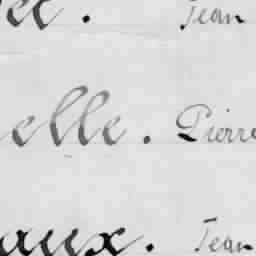 Jean
elle. Pierre
aux. Jean